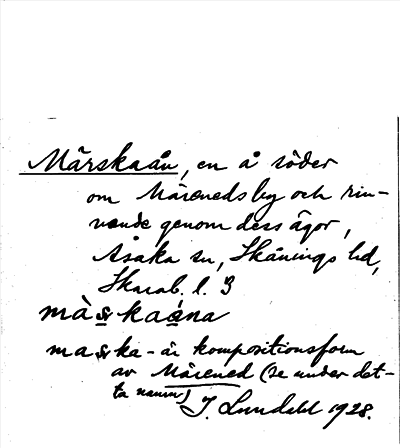 Märskaån, en å söder
om Märeneds by och rin-
nande genom dess ägor,
Åsaka sn, Skånings hd,
Skarab. l.
ma ka- är kompositionsform
av Märened (se under det-
ta namn)
J. Lundahl 1928.